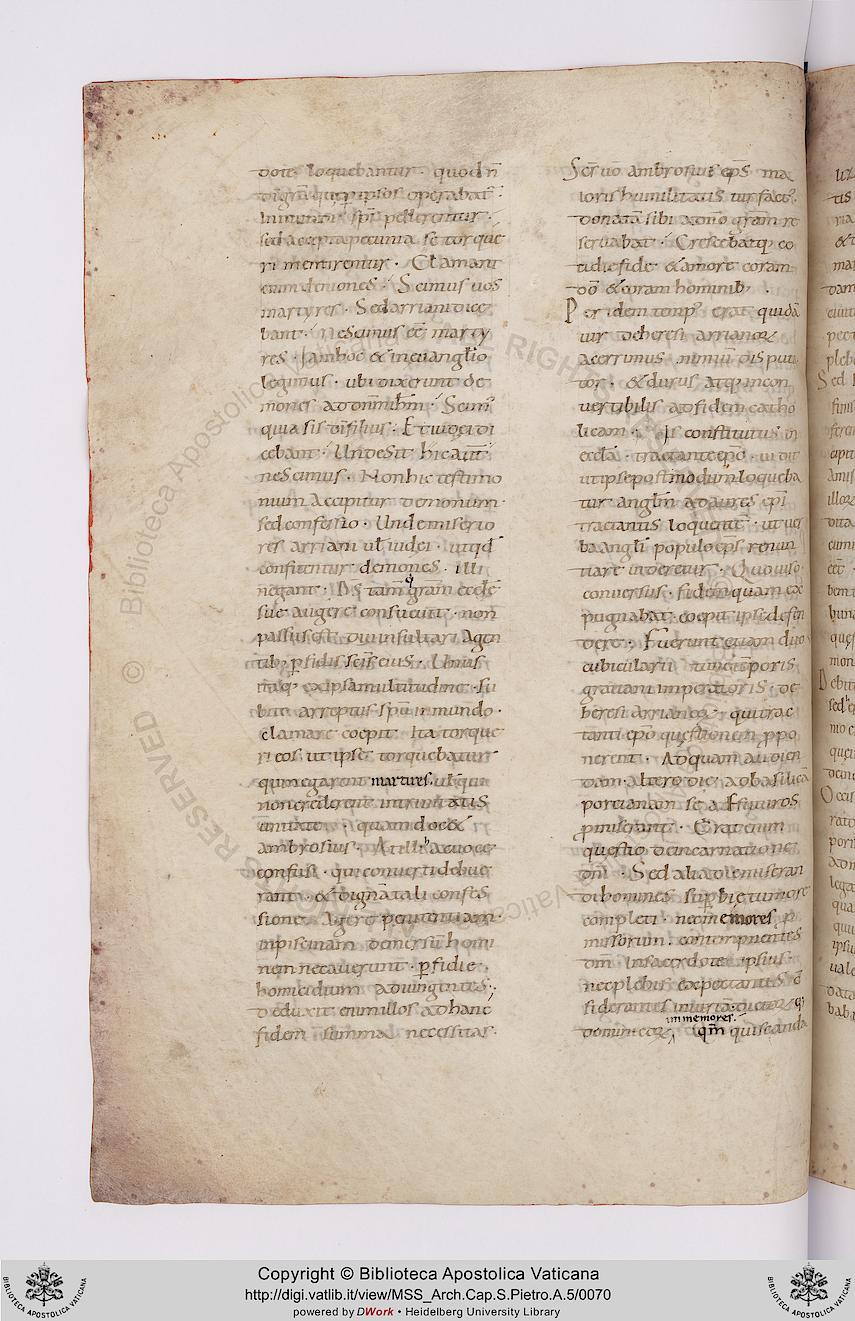 dote loquebantur · quod ñ
inmundi · sp̄s pellerentur ·
sed accepta pecunia se torque
ri mentirentur · Clamant
enim demones · Scimus uos
martyres · Sed arriani dice
bant · nescimus eē marty
res · Jam hoc & in euanglio
legimus · ubi dixerunt de
mones ad
quia sis dī filius · Et iudei di
cebant · Unde sit hic aūt
nescimus · Non hic testimo
nium accipitur demonum ·
sed confessio · Unde miserio
res arriani ul iudei · ut qđ
confitentur demones · illi
negant · Ds tam̄ gram̄ eccłe
sue augere consueuit · non
passus est diu insultari agen
tib; p̱fidis sc̄is eius · Unus
namq; ex ipsa multitudine · su
bito arreptus spū inmundo ·
clamare coepit · Ita torque
ri eos ut ipse torquebatur
qui negarent martires · ul qui
non crederent in trinitatis
unitate · quam docet
ambrosius · At illi hac uoce
confusi · qui conuerti debue
rant · & dignā tali confes
sione agere penitentiam ·
in piscinam demersū homi
nem necauerunt · p̱fidie
homicidium adiungentes ·
Deduxit enim illos ad hanc
fidem summa necessitas ·
Seruo ambrosius ep̄s ma
ioris humilitatis uir fact;
donatā sibi a dn̄o gram̄ re
seruabat · Crescebatq; co
tidie fide · & amore coram
dō & coram hominib; ·
Per idem temp; erat quidā
uir de heresi arrianoꝝ
acerrimus nimiū disputa
tor · & durus atq; incon
uertibilis ad fidem catho
licam · Is constitutus in
eccła · tractante ep̄o · uidit
ut ipse postmodum loqueba
tur anglm̄ ad aures ep̄i
tractantis loquentē · ut uer
ba angli populo ep̄s renun
tiare uideretur · Quo uiso
conuersus · fidem quam ex
pugnabat · coepit ipse defen
dere · Fuerunt etiam duo
cubicularii tunc temporis
gratiani imperatoris · de
heresi arrianoꝝ · qui trac
tanti ep̄o questionem p̱po
nerent · Ad quam audien
dam · altero die · ad basilicā
portianam se affuturos
p̱miserunt · Erat enim
questio de incarnatione
dn̄i · Sed alia die miseran
di homines sup̱bie tumore
completi · nec inmemores p̱
missorum · contempnentes
dm̄ in sacerdote ipsius ·
nec plebis expectantis
inmemores ·
qm̄ quiescanda
Copyright © Biblioteca Apostolica Vaticana
http://digi.vatlib.it/view/MSS_Arch.Cap.S.Pietro.A.5/0070
powered by DWork • Heidelberg University Library